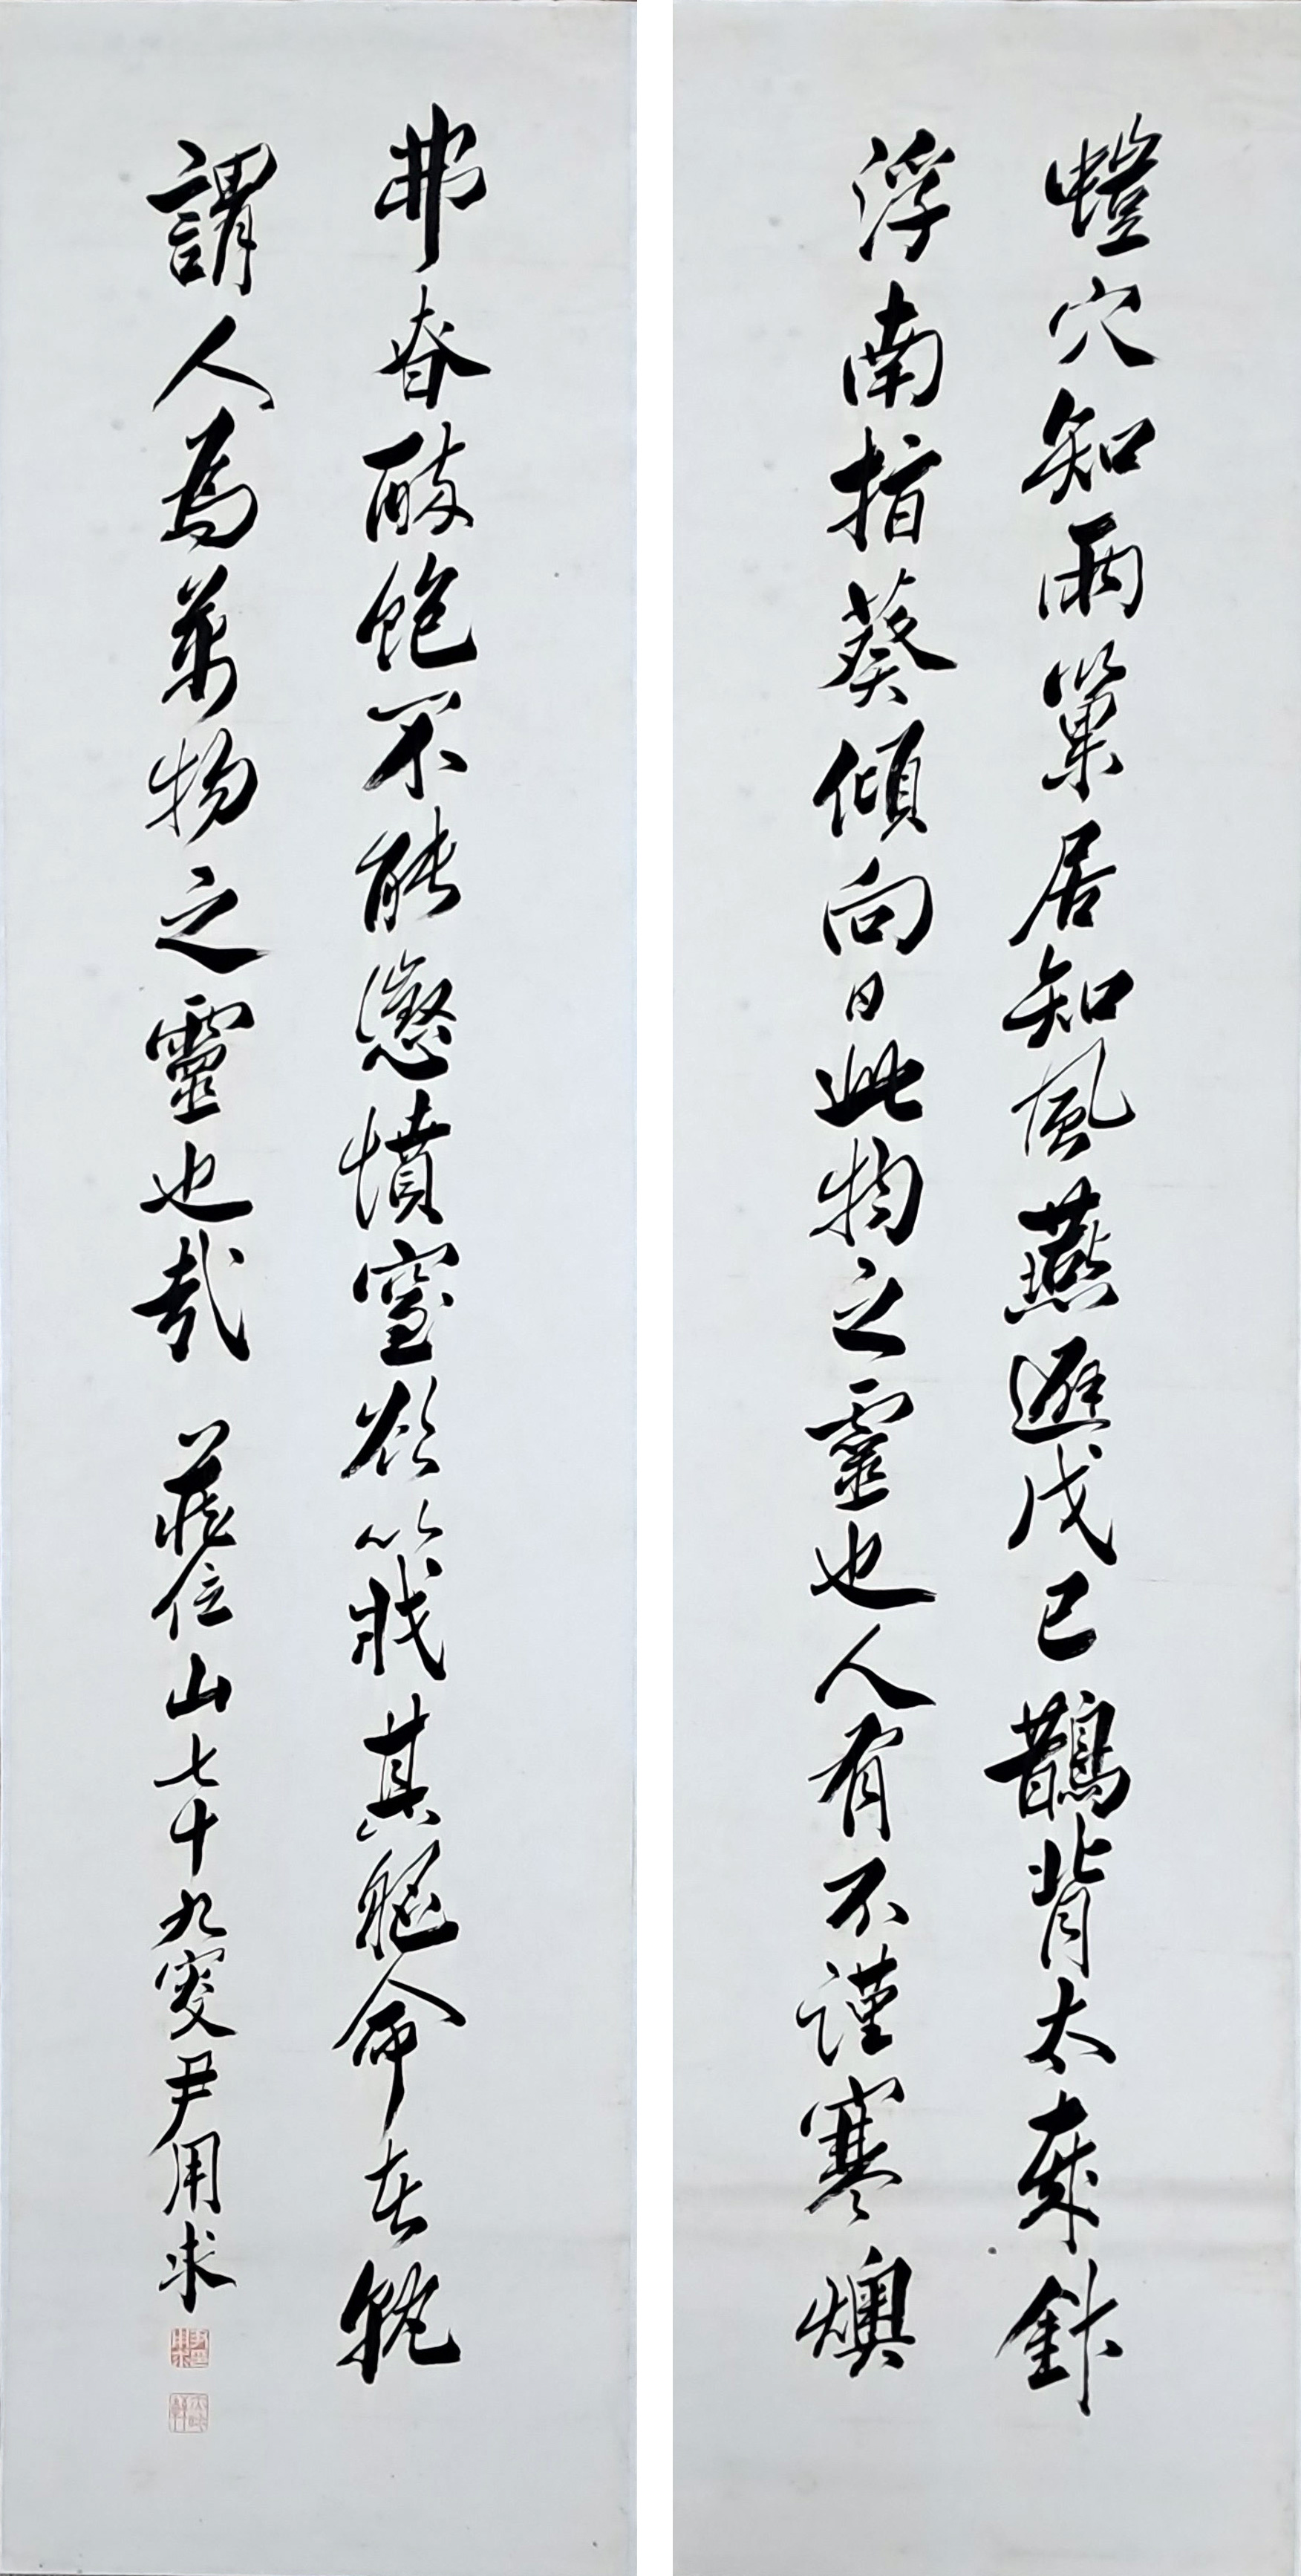 螘穴知雨巢居知風燕避戊己鵲背太歲針
浮南指葵傾向日此物之靈也人有不謹寒燠
弗眘醉飽不能懲憤窒欲以戕其軀命者孰
謂人為萬物之靈也哉 位山七十九叟尹用求